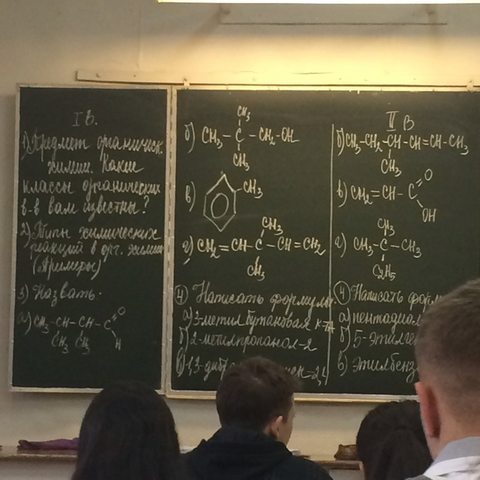 I В.
1) Предмет органическ.
химии. Какие
классы органических
в-в вам известны?
2) Типы химических
реакций в орг. химии
(Примеры)
3) Назвать.
а) CH3-CH-CH-C
O
H
CH3 CH3
CH3
б) CH3-C-CH2-OH
CH3
в)
CH3
CH3
г) CH2=CH-C-CH=CH2
CH3
4) Написать формулы
а) 3-метилбутановая к-та
б) 2-метилпропанол-2
в) 1,3-
II В
б) CH3-CH2-CH-CH=CH-CH3
CH3
в) CH2=CH-C
O
OH
CH3
г) CH3-C-CH3
C2H5
4) Написать форм
а)
б) 5-этил
в) этилбенз